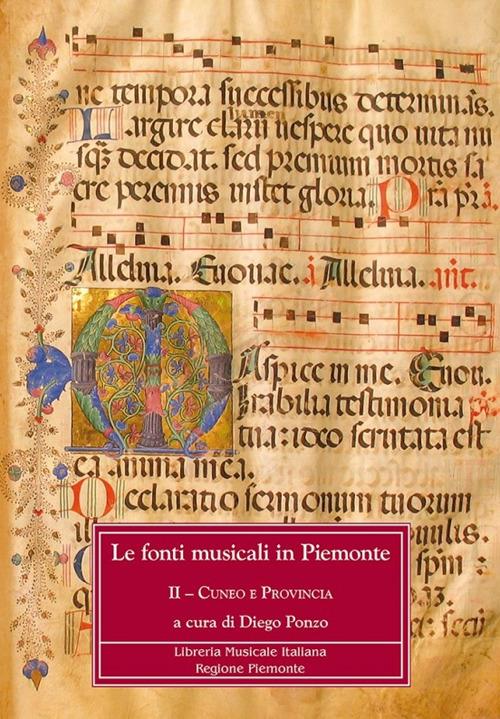 ne tempora successibus determinas.
lumen
Largire clarū uespere quo uita nu
sq̄ decidat. sed premium mortis sa
cre perennis instet gloria. P̄ra pr̄a.
Alleluia. Euouae. á Alleluia. ant̄.
Aspice in me. Euou.
Mirabilia testimonia
tua: ideo scrutata est
ea anima mea.
Declaratio sermonum tuorum
Le fonti musicali in Piemonte
II – CUNEO E PROVINCIA
a cura di Diego Ponzo
Libreria Musicale Italiana
Regione Piemonte